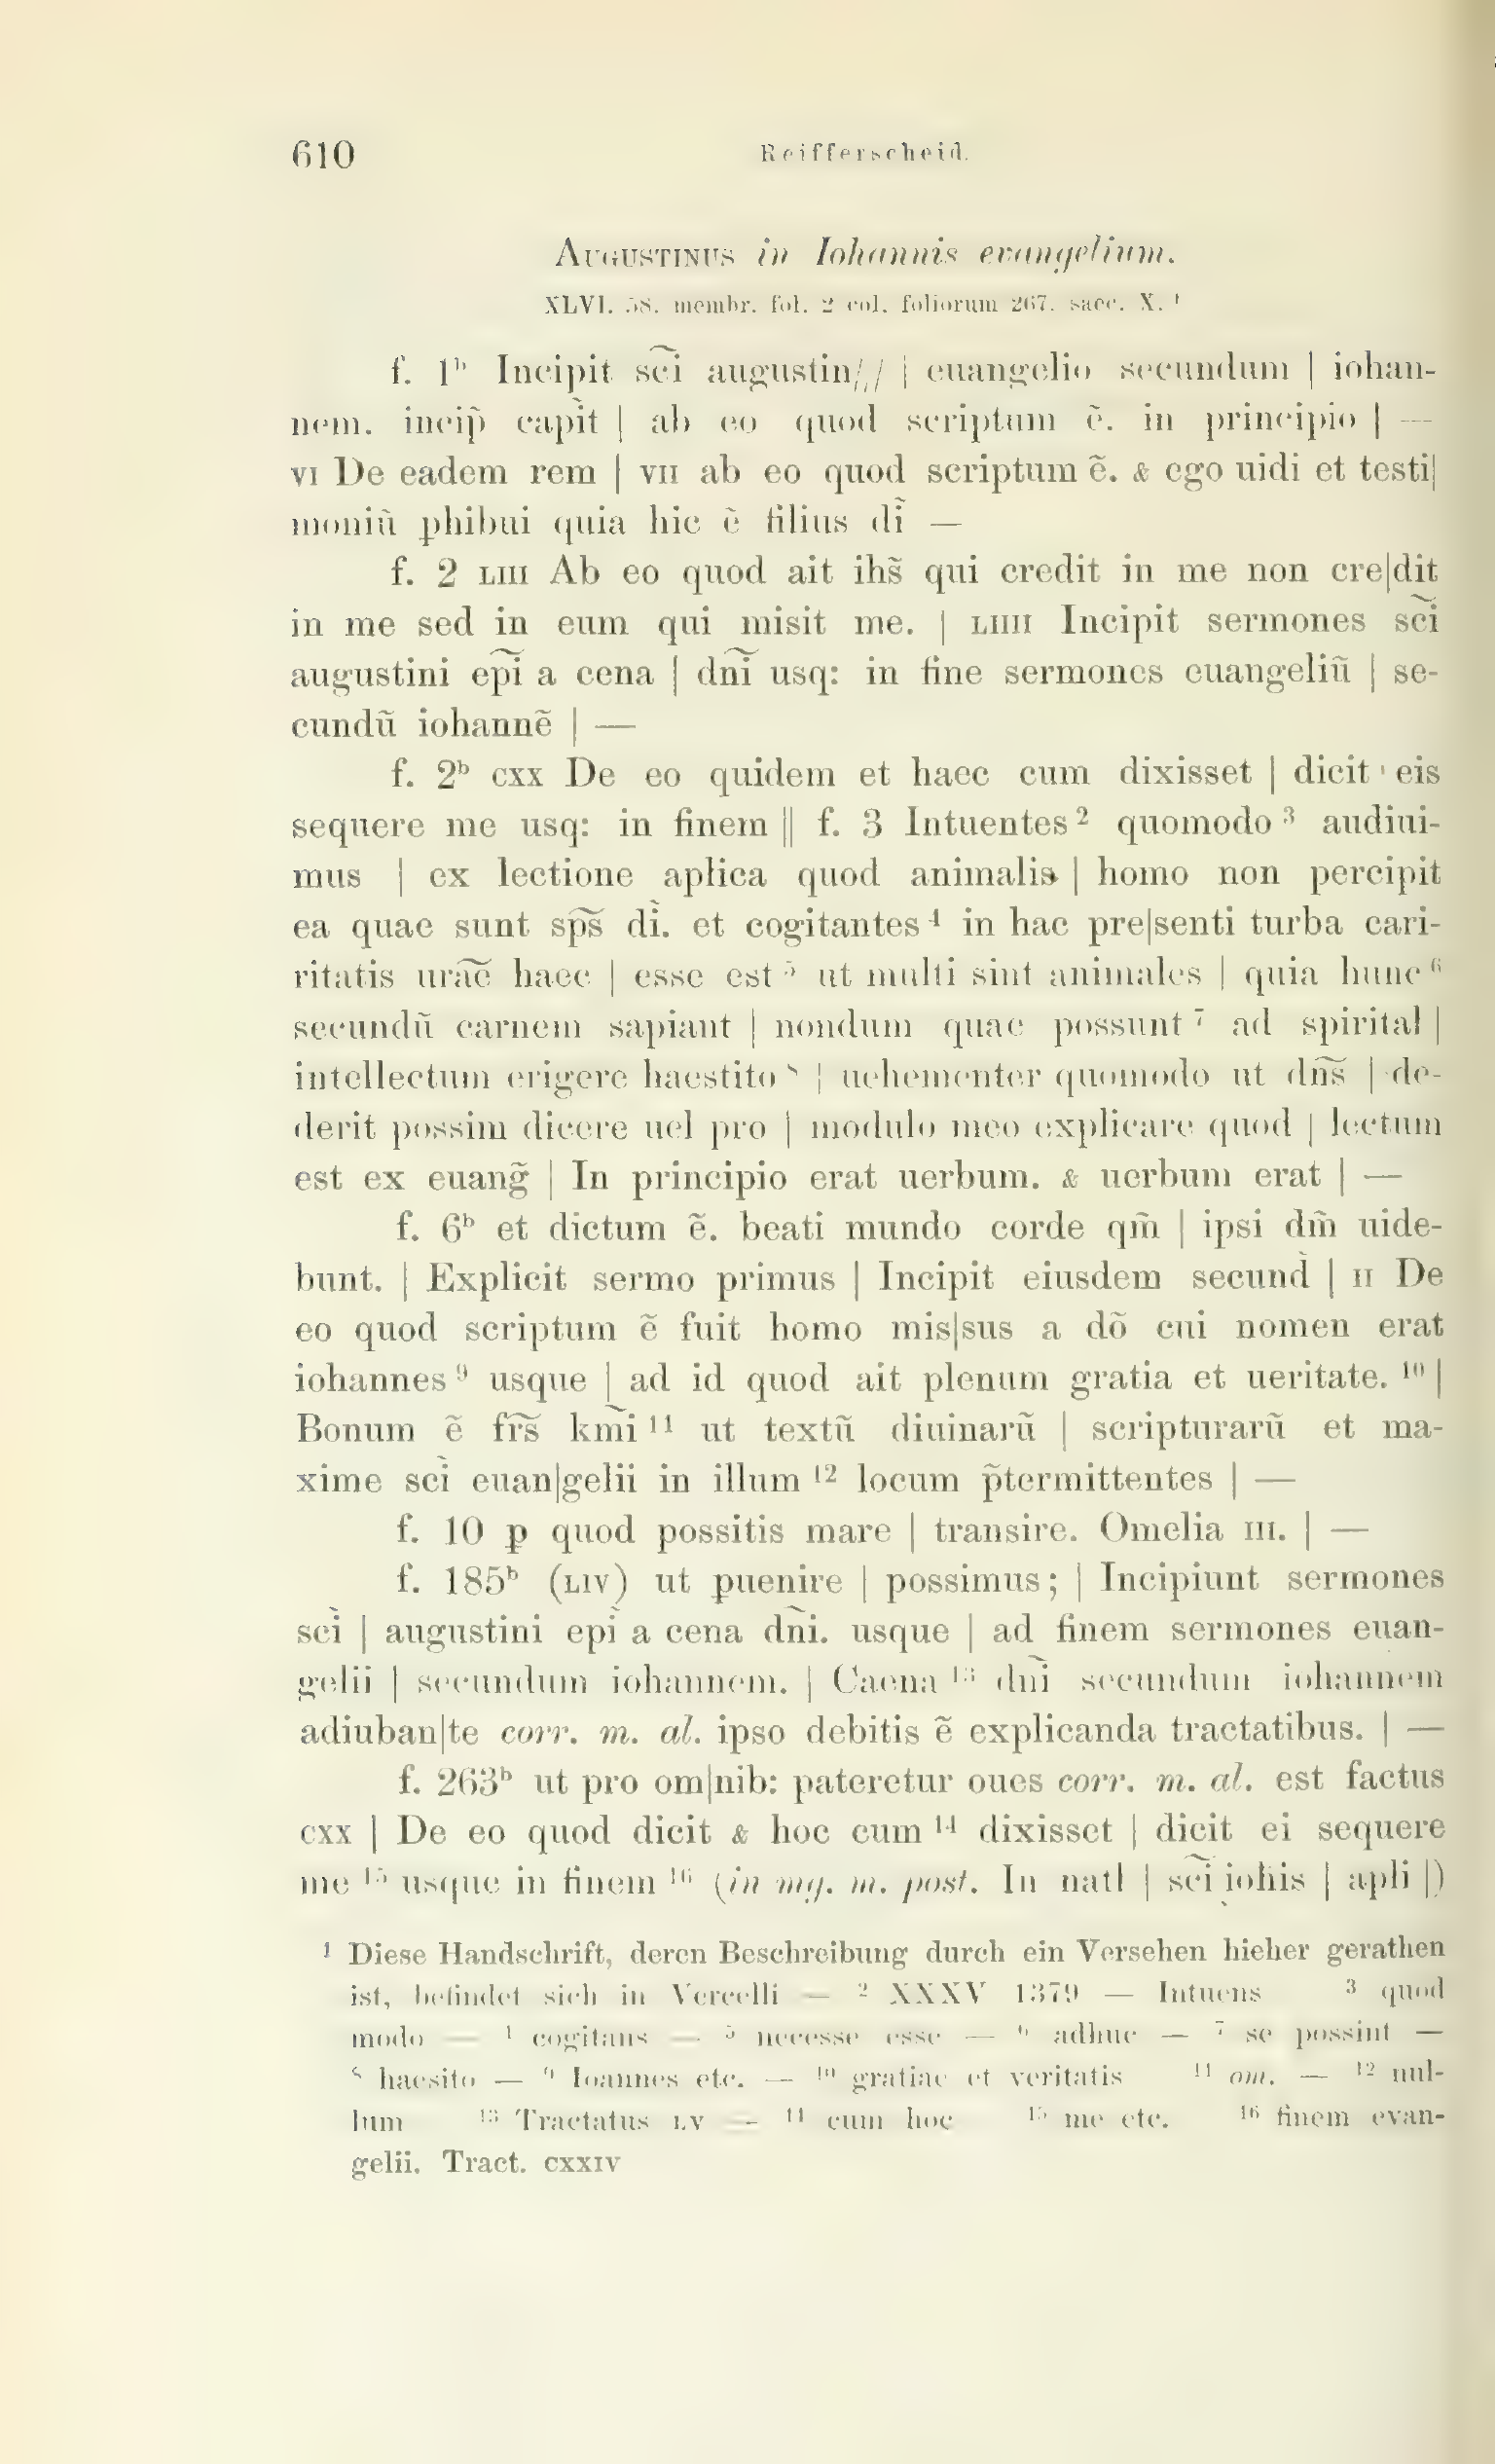 610
Reifferscheid.
AUGUSTINUS in Iohannis evangelium.
XLVI. 58. membr. fol. 2 col. foliorum 267. saec. X. ¹
f. 1ᵇ Incipit sc͠i augustin/,/ | euangelio secundum | iohan-
nem. incip̃ capìt | ab eo quod scriptum ẽ. in principio | —
VI De eadem rem | VII ab eo quod scriptum ẽ. & ego uidi et testi|
moniũ ꝑhibui quia hic ẽ filius dì —
f. 2 LIII Ab eo quod ait ihs̃ qui credit in me non cre|dit
in me sed in eum qui misit me. | LIIII Incipit sermones sc͠i
augustini ep͠i a cena | dn͠i usq: in fine sermones euangeliũ | se-
cundũ iohannẽ | —
f. 2ᵇ CXX De eo quidem et haec cum dixisset | dicit ' eis
sequere me usq: in finem || f. 3 Intuentes ² quomodo ³ audiui-
mus | ex lectione aplìca quod animalis | homo non percipit
ea quae sunt sp͠s dì. et cogitantes ⁴ in hac pre|senti turba cari-
ritatis ura͠e haec | esse est ⁵ ut multi sint animales | quia hunc ⁶
secundũ carnem sapiant | nondum quae possunt ⁷ ad spirital |
intellectum erigere haestito ⁸ | uehementer quomodo ut dn͠s | de-
derit possim dicere uel pro | modulo meo explicare quod | lectum
est ex euang̃ | In principio erat uerbum. & uerbum erat | —
f. 6ᵇ et dictum ẽ. beati mundo corde qm̃ | ipsi dm̃ uide-
bunt. | Explicit sermo primus | Incipit eiusdem secund̀ | II De
eo quod scriptum ẽ fuit homo mis|sus a dõ cui nomen erat
iohannes ⁹ usque | ad id quod ait plenum gratia et ueritate. ¹⁰ |
Bonum ẽ fr͠s km͠i ¹¹ ut textũ diuinarũ | scripturarũ et ma-
xime scì euan|gelii in illum ¹² locum p̃termittentes | —
f. 10 ꝑ quod possitis mare | transire. Omelia III. | —
f. 185ᵇ (LIV) ut ꝑuenire | possimus; | Incipiunt sermones
scì | augustini epì a cena dn͠i. usque | ad finem sermones euan-
gelii | secundum iohannem. | Caena ¹³ dn͠i secundum iohannem
adiuban|te corr. m. al. ipso debitis ẽ explicanda tractatibus. | —
f. 263ᵇ ut pro om|nib: pateretur oues corr. m. al. est factus
CXX | De eo quod dicit & hoc cum ¹⁴ dixisset | dicit ei sequere
me ¹⁵ usque in finem ¹⁶ (in mg. m. post. In natl | sc͠i iohis | apli |)
¹ Diese Handschrift, deren Beschreibung durch ein Versehen hieher gerathen
ist, befindet sich in Vercelli — ² XXXV 1379 — Intuens ³ quod
modo — ⁴ cogitans — ⁵ necesse esse — ⁶ adhuc — ⁷ se possint —
⁸ haesito — ⁹ Ioannes etc. — ¹⁰ gratiae et veritatis ¹¹ om. — ¹² nul-
lum ¹³ Tractatus LV — ¹⁴ cum hoc ¹⁵ me etc. ¹⁶ finem evan-
gelii. Tract. CXXIV